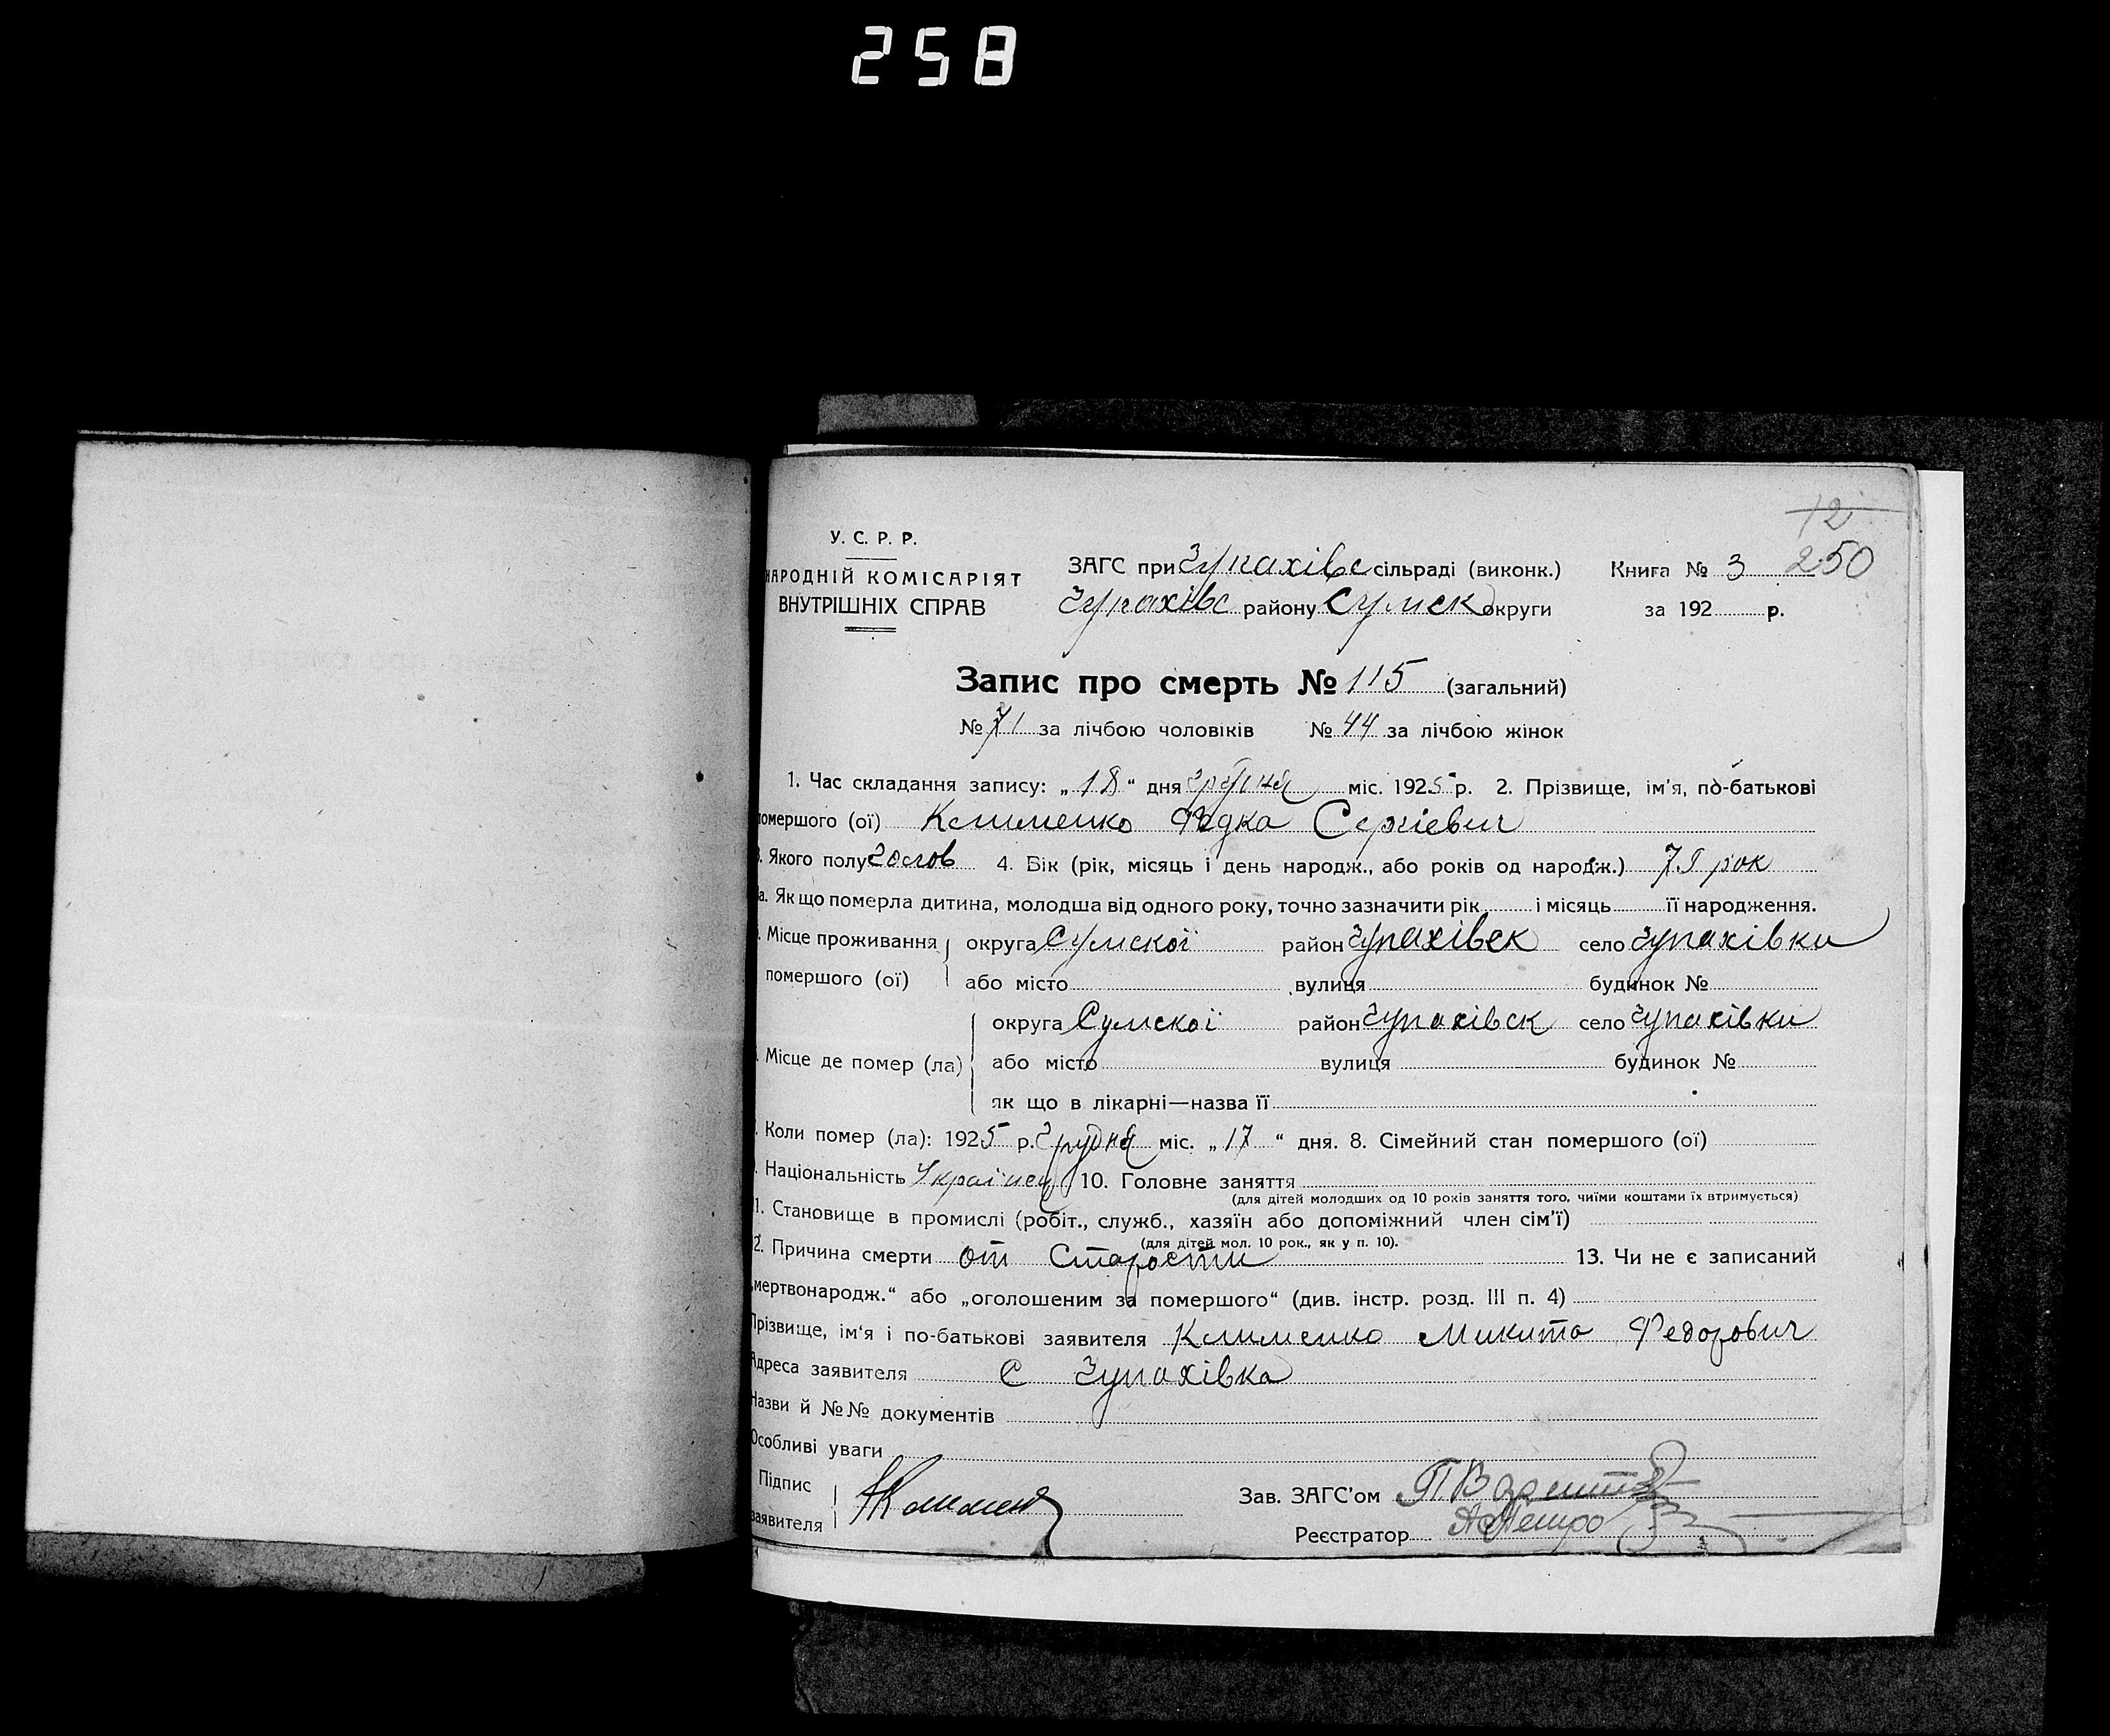 258
12
250
У. С. Р. Р.
НАРОДНІЙ КОМІСАРІЯТ
ВНУТРІШНІХ СПРАВ
ЗАГС при Зупахівс сільраді (виконк.) Книга № 3
Зупахівс району Сумск округи за 192 р.
Запис про смерть № 115 (загальний)
№ 71 за лічбою чоловіків № 44 за лічбою жінок
1. Час складання запису: „ 18 “ дня грудня міс. 1925 р. 2. Прізвище, ім’я, по-батькові
помершого (ої) Клименко Федка Сергієвич
3. Якого полу чолов 4. Вік (рік, місяць і день народж., або років од народж.) рок
а. Якщо померла дитина, молодша від одного року, точно зазначити рік і місяць її народження.
Місце проживання округа Сумскої район Зупахівск село Зупахівки
помершого (ої) або місто вулиця будинок №
округа Сумскої район Зупахівск село Зупахівки
Місце де помер (ла) або місто вулиця будинок №
як що в лікарні—назва її
Коли помер (ла): 1925 р. Грудня міс. „ 17 “ дня. 8. Сімейний стан помершого (ої)
Національність Українец 10. Головне заняття
(для дітей молодших од 10 років заняття того, чиїми коштами їх втримується)
1. Становище в промислі (робіт., служб., хазяїн або допоміжний член сім’ї)
(для дітей мол. 10 рок., як у п. 10).
2. Причина смерти от Старости 13. Чи не є записаний
„мертвонародж.“ або „оголошеним за помершого“ (див. інстр. розд. III п. 4)
Прізвище, ім‘я і по-батькові заявителя Клименко Микита Федорович
Адреса заявителя С Зупахівка
Назви й №№ документів
Особливі уваги
Підпис
заявителя
Зав. ЗАГС’ом
Реєстратор